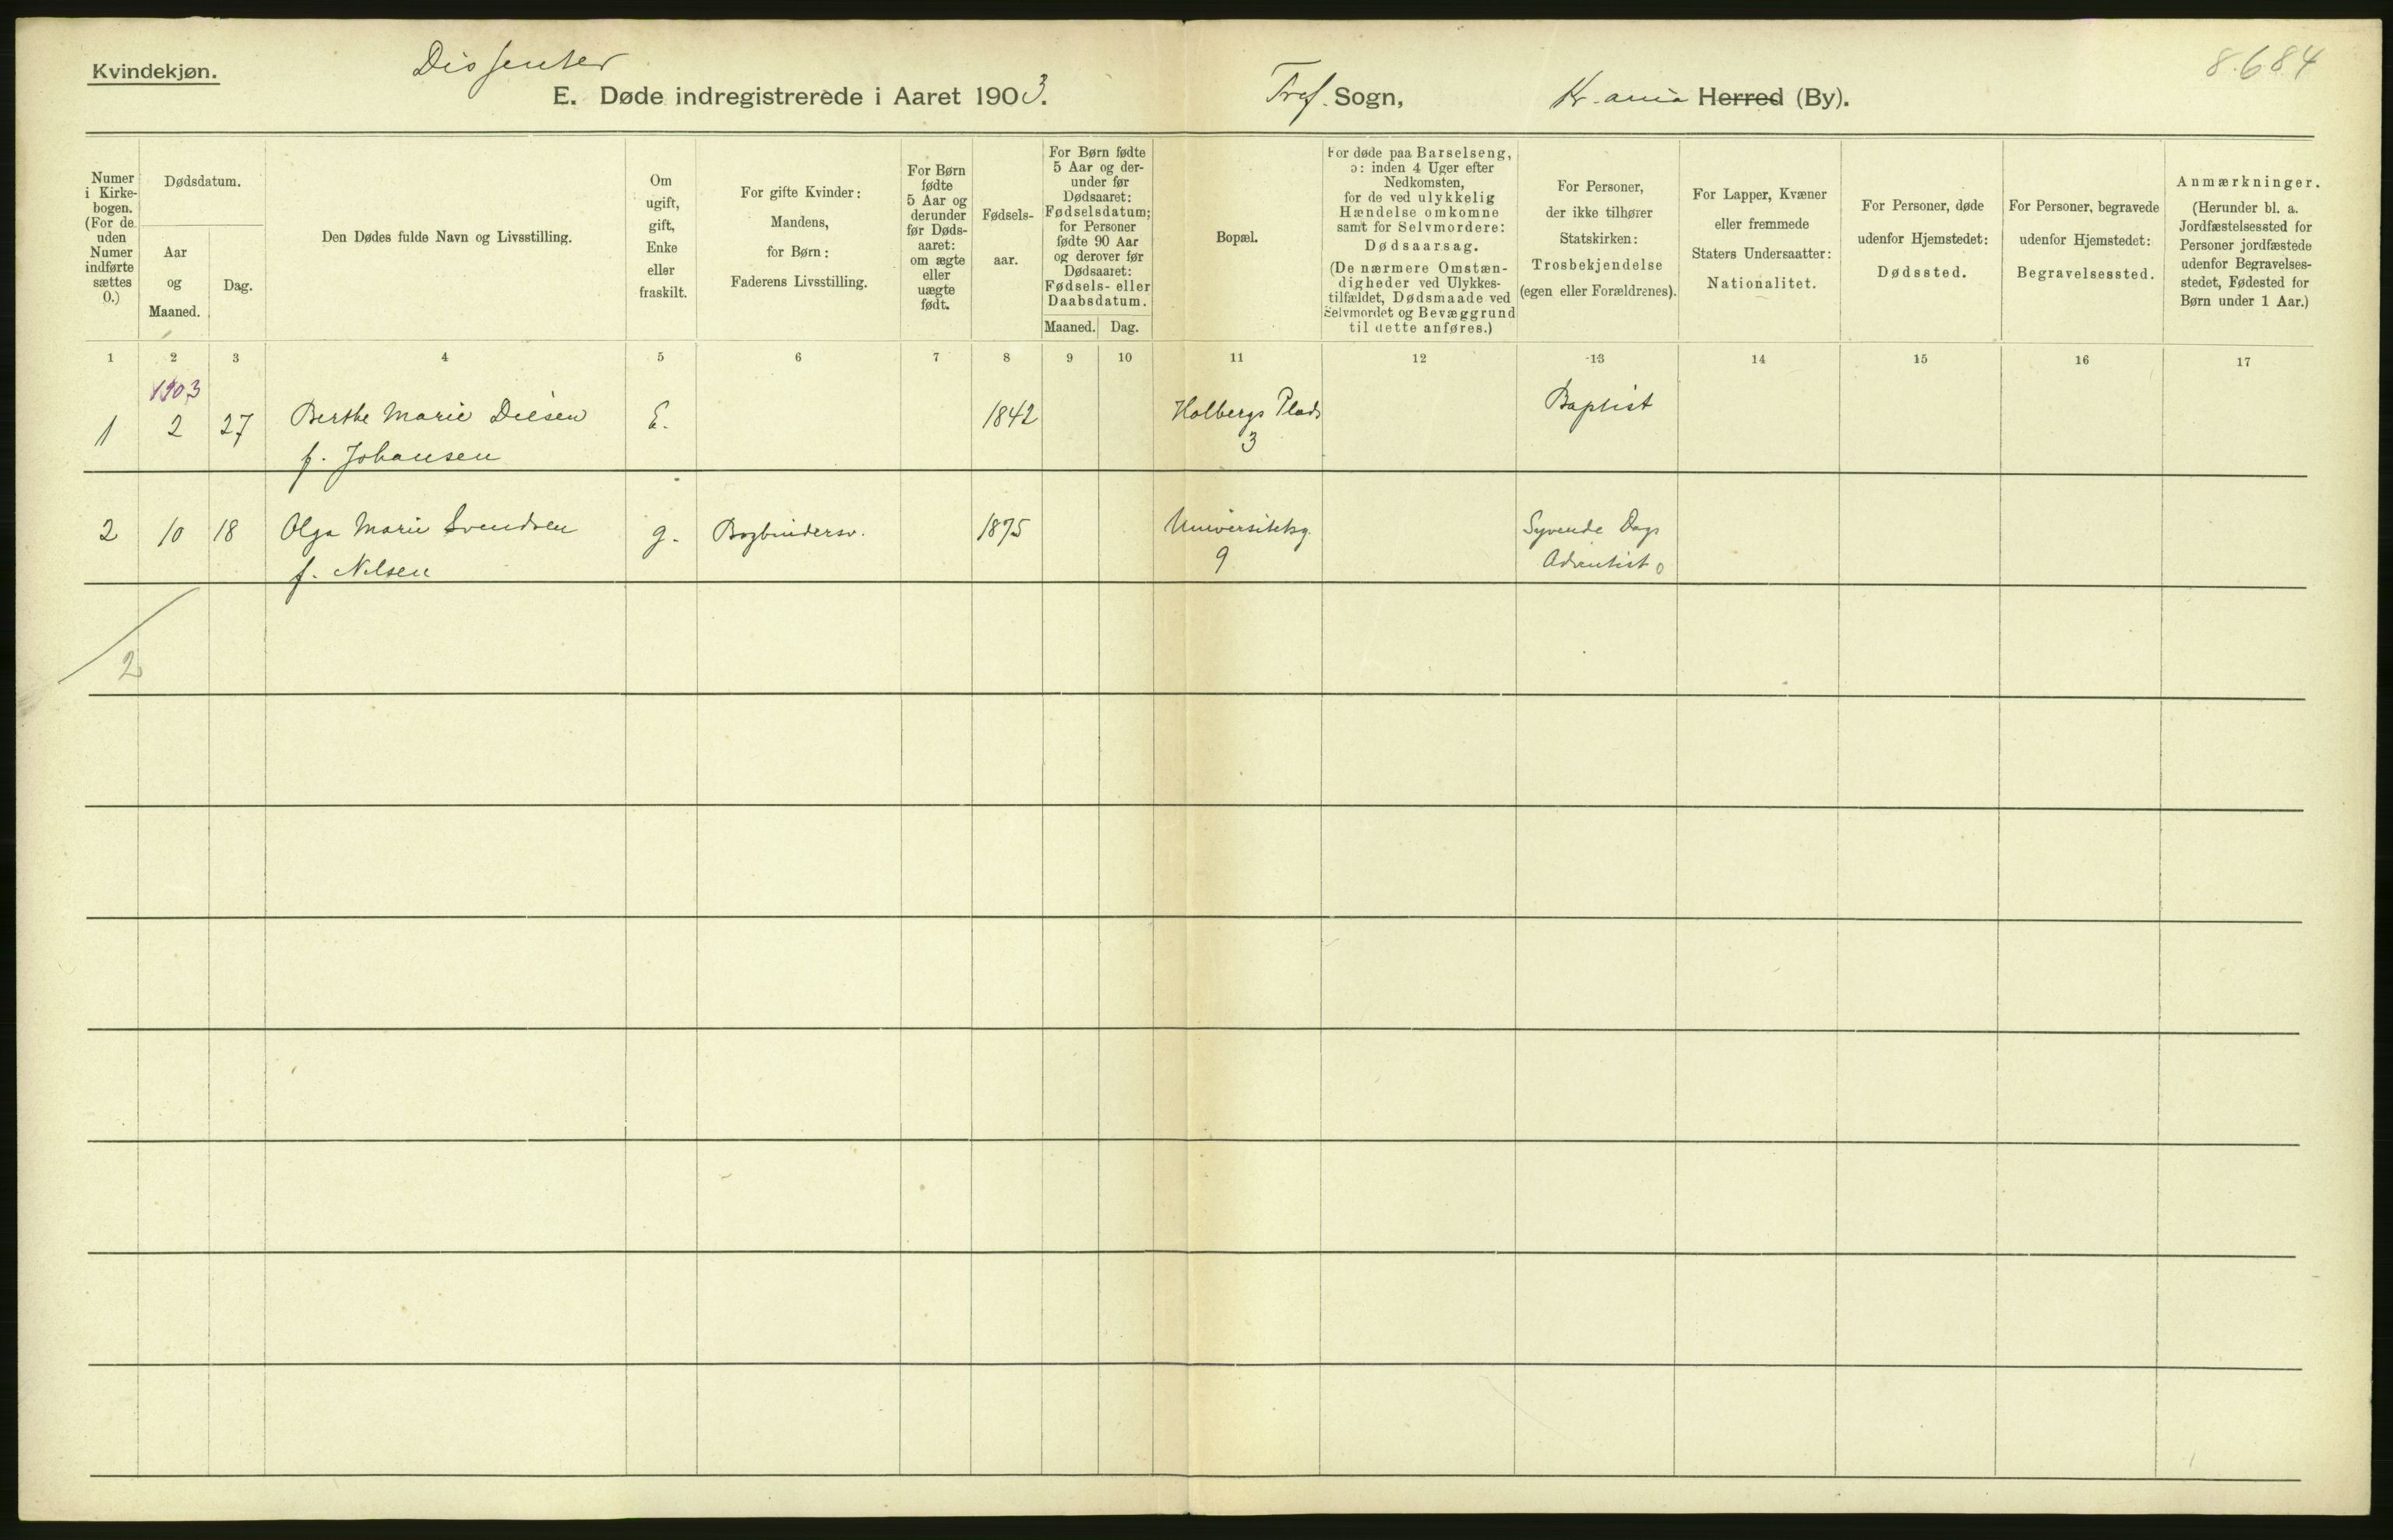 Kvindekjøn.
Dissenter
8.684
E. Døde indregistrerede i Aaret 1903.
Tref. Sogn,
Kr.ania Herred (By).
Numer
i Kirke-
bogen.
(For de
uden
Numer
indførte
sættes
0.)
Dødsdatum.
Aar
og
Maaned.
Dag.
Den Dødes fulde Navn og Livsstilling.
Om
ugift,
gift,
Enke
eller
fraskilt.
For gifte Kvinder:
Mandens,
for Børn:
Faderens Livsstilling.
For Børn
fødte
5 Aar og
derunder
før Døds-
aaret:
om ægte
eller
uægte
født.
Fødsels-
aar.
For Børn fødte
5 Aar og der-
under før
Dødsaaret:
Fødselsdatum;
for Personer
fødte 90 Aar
og derover før
Dødsaaret:
Fødsels- eller
Daabsdatum.
Maaned. Dag.
Bopæl.
For døde paa Barselseng,
ɔ: inden 4 Uger efter
Nedkomsten,
for de ved ulykkelig
Hændelse omkomne
samt for Selvmordere:
Dødsaarsag.
(De nærmere Omstæn-
digheder ved Ulykkes-
tilfældet, Dødsmaade ved
Selvmordet og Bevæggrund
til dette anføres.)
For Personer,
der ikke tilhører
Statskirken:
Trosbekjendelse
(egen eller Forældrenes).
For Lapper, Kvæner
eller fremmede
Staters Undersaatter:
Nationalitet.
For Personer, døde
udenfor Hjemstedet:
Dødssted.
For Personer, begravede
udenfor Hjemstedet:
Begravelsessted.
Anmærkninger.
(Herunder bl. a.
Jordfæstelsessted for
Personer jordfæstede
udenfor Begravelses-
stedet, Fødested for
Børn under 1 Aar.)
1 2 3 4 5 6 7 8 9 10 11 12 13 14 15 16 17
1903
1 2 27 Berthe Marie Diesen E. 1842 Holbergs Plads Baptist
f. Johansen 3
2 10 18 Olga Marie Svendsen g. Bogbindersv. 1875 Universitetsg. Syvende Dags
f. Nilsen 9 Adventist
2